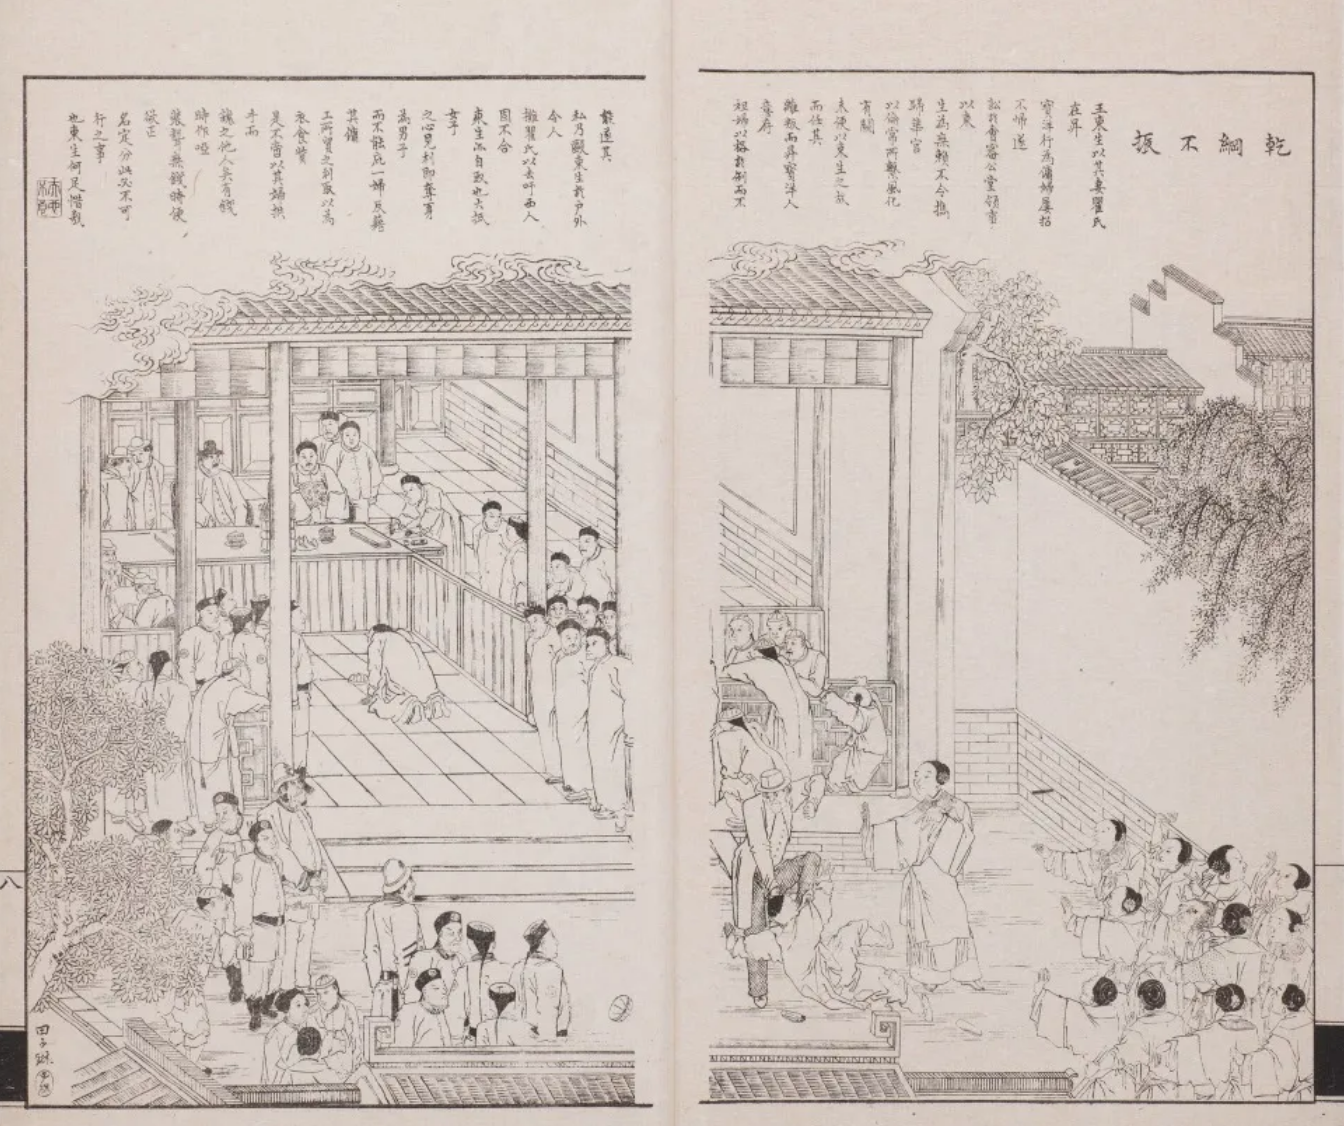 乾綱不振
王東生以其妻瞿氏
在昇
寶洋行為傭婦屢招
不歸遂
訟於會審公堂領事
以東
生為無賴不令攜
歸華官
以倫常所繫風化
有關
未便以東生之故
而任其
離叛而昇寶洋人
祖婦以格於例而不
能遂其
私乃毆東生於戶外
令人
擁瞿氏以去吁西人
固不合
東生亦自取也大抵
女子
之心見利即奪身
為男子
而不能庇一婦反藉
其傭
工所貿之利取以為
衣食資
是不啻以其婦拱
手而
讓之他人矣有錢
時作啞
裝聾無錢時便
欲正
名定分此必不可
行之事
也東生何足惜哉
田子琳
八